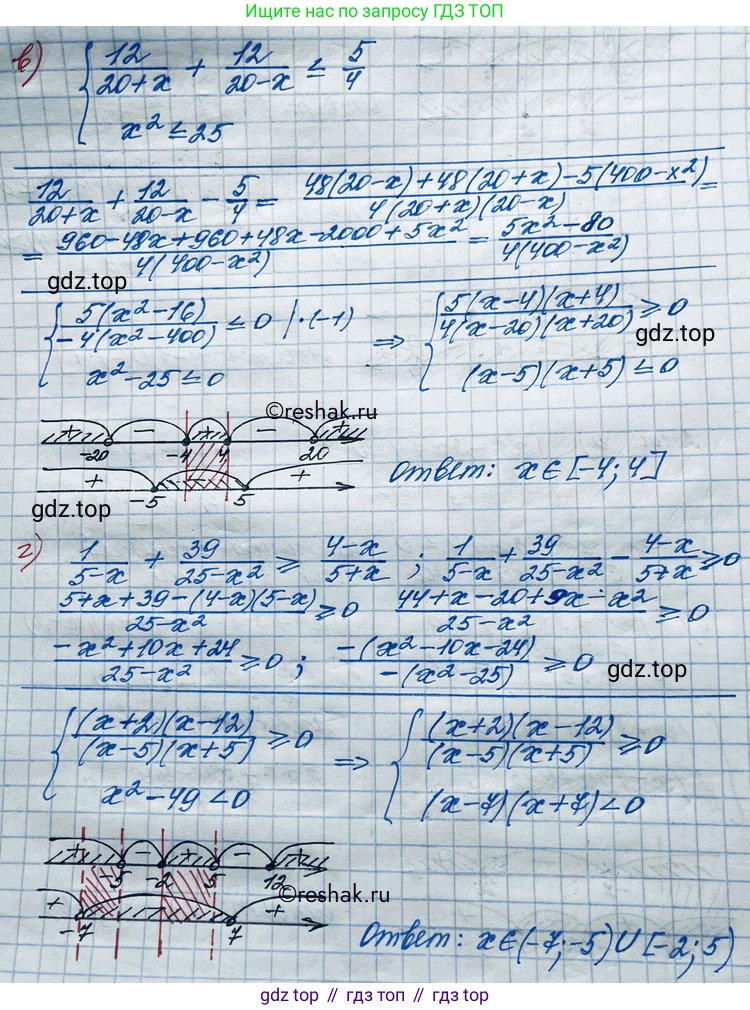 Ищите нас по запросу ГДЗ ТОП
в) { 12/(20+x) + 12/(20-x) ≤ 5/4
x² ≤ 25
12/(20+x) + 12/(20-x) - 5/4 = (48(20-x)+48(20+x)-5(400-x²))/(4(20+x)(20-x)) =
= (960-48x+960+48x-2000+5x²)/(4(400-x²)) = (5x²-80)/(4(400-x²))
gdz.top
{ 5(x²-16)/(-4(x²-400)) ≤ 0 |·(-1) ⇒ { 5(x-4)(x+4)/(4(x-20)(x+20)) ≥ 0
gdz.top
x²-25 ≤ 0 (x-5)(x+5) ≤ 0
©reshak.ru
+ - + - +
-20 -4 4 20
+ - +
-5 5
Ответ: x ∈ [-4; 4]
gdz.top
г) 1/(5-x) + 39/(25-x²) ≥ (4-x)/(5+x) ; 1/(5-x) + 39/(25-x²) - (4-x)/(5+x) ≥ 0
(5+x+39-(4-x)(5-x))/(25-x²) ≥ 0 (44+x-20+9x-x²)/(25-x²) ≥ 0
(-x²+10x+24)/(25-x²) ≥ 0 ; -(x²-10x-24)/(-(x²-25)) ≥ 0
gdz.top
{ (x+2)(x-12)/((x-5)(x+5)) ≥ 0 ⇒ { (x+2)(x-12)/((x-5)(x+5)) ≥ 0
x²-49 < 0 (x-7)(x+7) < 0
+ - + - +
-5 -2 5 12
©reshak.ru
+ +
-7 7
Ответ: x ∈ (-7; -5) U [-2; 5)
gdz top // гдз топ // gdz top